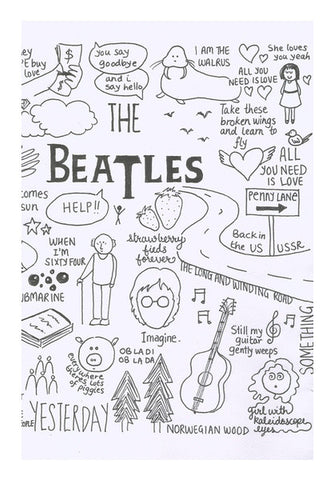 hey
you say
goodbye
and i
say hello
buy
love
$
I AM THE
WALRUS
She loves
you yeah
ALL YOU
NEED IS LOVE
Take these
broken wings
and learn to
fly
THE
BEATLES
ALL
YOU NEED
IS LOVE
PENNY LANE
comes
sun
HELP!!
strawberry
fieds
forever
Back in
the US
USSR
WHEN I'M
SIXTY FOUR
THE LONG AND WINDING ROAD
SUBMARINE
Imagine.
SOMETHING
Still my
guitar
gently weeps
OB LA DI
OB LA DA
everywhere
there's lots
of piggies
girl with
kaleidoscope
eyes
PEOPLE
YESTERDAY
NORWEGIAN WOOD